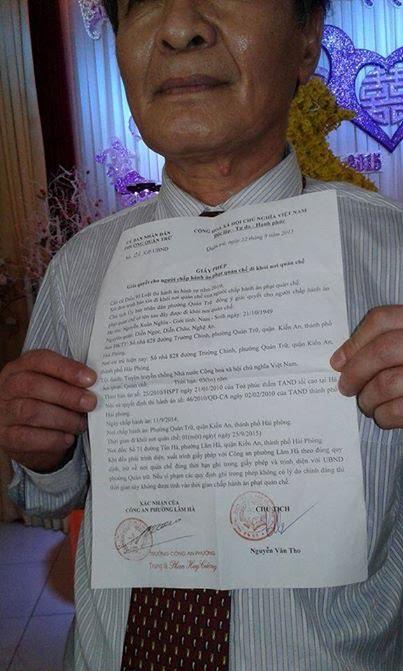 ỦY BAN NHÂN DÂN
PHƯỜNG QUÁN TRỮ
CỘNG HÒA XÃ HỘI CHỦ NGHĨA VIỆT NAM
Độc lập - Tự do - Hạnh phúc
Quán trữ, ngày 22 tháng 9 năm 2015
GIẤY PHÉP
Giải quyết cho người chấp hành án phạt quản chế đi khỏi nơi quản chế
Căn cứ Điều 91 Luật thi hành án hình sự năm 2010.
Xét đơn trình bày xin đi khỏi nơi quản chế của người chấp hành án phạt quản chế.
Chủ tịch Ủy ban nhân dân phường Quán Trữ đồng ý giải quyết cho người chấp hành án
phạt quản chế có tên sau đây được đi khỏi nơi quản chế:
Họ tên: Nguyễn Xuân Nghĩa - Giới tính: Nam - Sinh ngày: 21/10/1949
Nguyên quán: Diễn Ngọc, Diễn Châu, Nghệ An.
Nơi ĐKTT: Số nhà 828 đường Trường Chinh, phường Quán Trữ, quận Kiến An, thành phố
Hải Phòng.
Nơi cư trú hiện nay: Số nhà 828 đường Trường Chinh, phường Quán Trữ, quận Kiến An,
thành phố Hải Phòng.
Tội danh: Tuyên truyền chống Nhà nước Cộng hoà xã hội chủ nghĩa Việt Nam.
Án phạt: Quản chế: Thời hạn: 03(ba) năm
Theo bản án số: 25/2010/HSPT ngày 21/01/2010 của Toà phúc thẩm TAND tối cao tại Hà
Nội và quyết định thi hành án số: 46/2010/QĐ-CA ngày 02/02/2010 của TAND thành phố
Hải phòng.
Ngày chấp hành: 11/9/2014.
Nơi chấp hành án: Phường Quán Trữ, quận Kiến An, thành phố Hải phòng.
Thời gian đi khỏi nơi quản chế: 01(một) ngày ( ngày 25/9/2015)
Nơi đến: Số 71 đường Tôn Hà, phường Lãm Hà, quận Kiến An, thành phố Hải Phòng.
Khi đến phải trình diện, xuất trình giấy phép với Công an phường Lãm Hà theo đúng quy
định, trở về nơi quản chế đúng thời hạn ghi trong giấy phép và trình diện với UBND
phường Quán trữ. Nếu vi phạm các quy định ghi trong phép không có lý do chính đáng thì
thời gian này không được tính vào thời gian chấp hành án phạt quản chế.
XÁC NHẬN CỦA
CÔNG AN PHƯỜNG LÃM HÀ
CHỦ TỊCH
TRƯỞNG CÔNG AN PHƯỜNG
Trung tá Phan Huy Cường
Nguyễn Văn Tho
2015